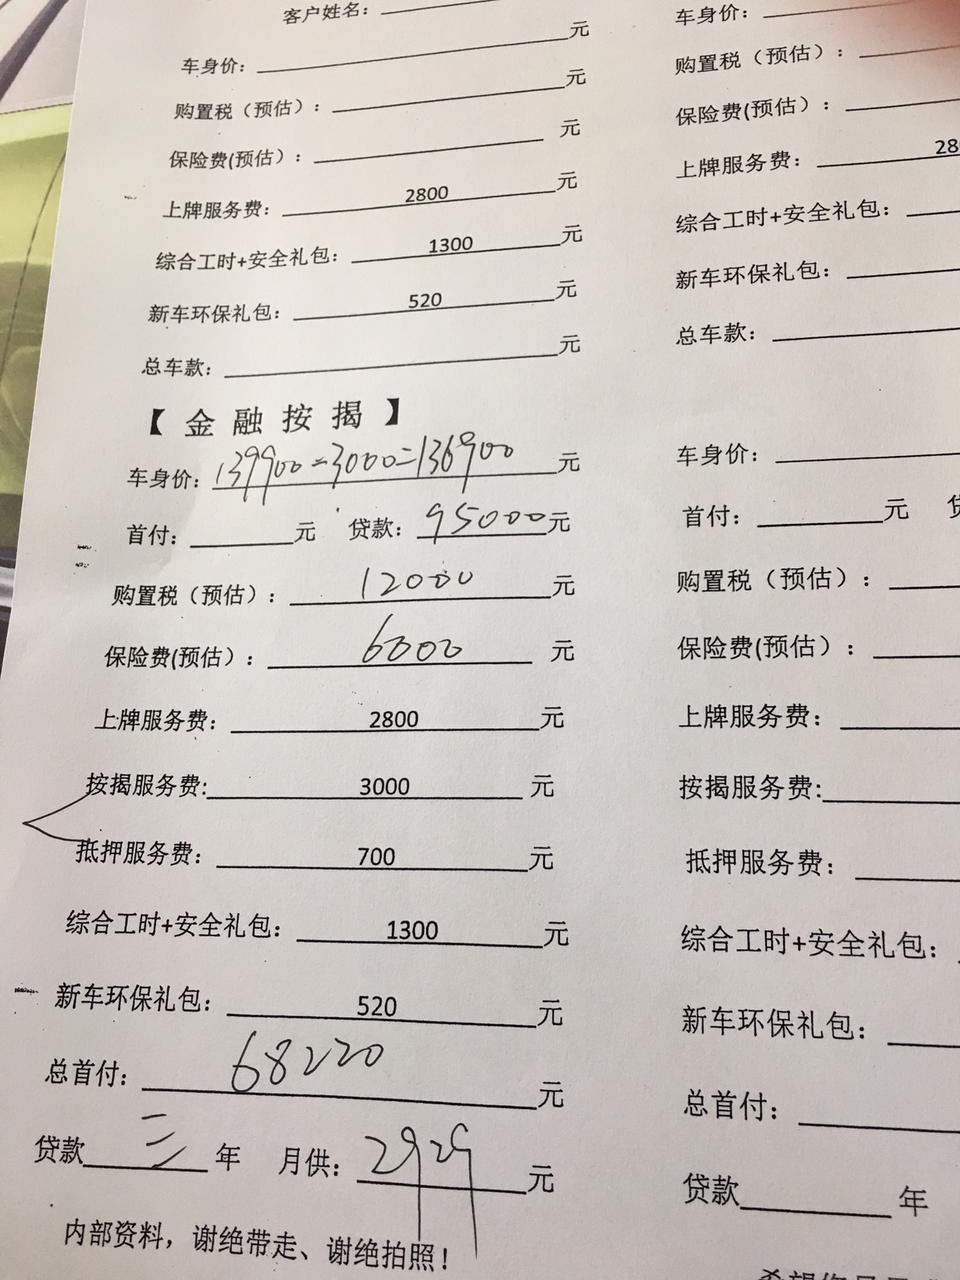 客户姓名：
车身价： 元
购置税（预估）： 元
保险费(预估）： 元
上牌服务费： 2800 元
综合工时+安全礼包： 1300 元
新车环保礼包： 520 元
总车款： 元
【 金 融 按 揭 】
车身价：139900-3000=136900 元
首付： 元 贷款：95000元
购置税（预估）： 12000 元
保险费(预估）： 6000 元
上牌服务费： 2800 元
按揭服务费: 3000 元
抵押服务费： 700 元
综合工时+安全礼包： 1300 元
新车环保礼包： 520 元
总首付： 68220 元
贷款 三 年 月供：2929 元
内部资料，谢绝带走、谢绝拍照！
车身价：
购置税（预估）：
保险费(预估）：
上牌服务费： 28
综合工时+安全礼包：
新车环保礼包：
总车款：
车身价：
首付： 元
购置税（预估）：
保险费(预估）：
上牌服务费：
按揭服务费:
抵押服务费：
综合工时+安全礼包：
新车环保礼包：
总首付：
贷款 年